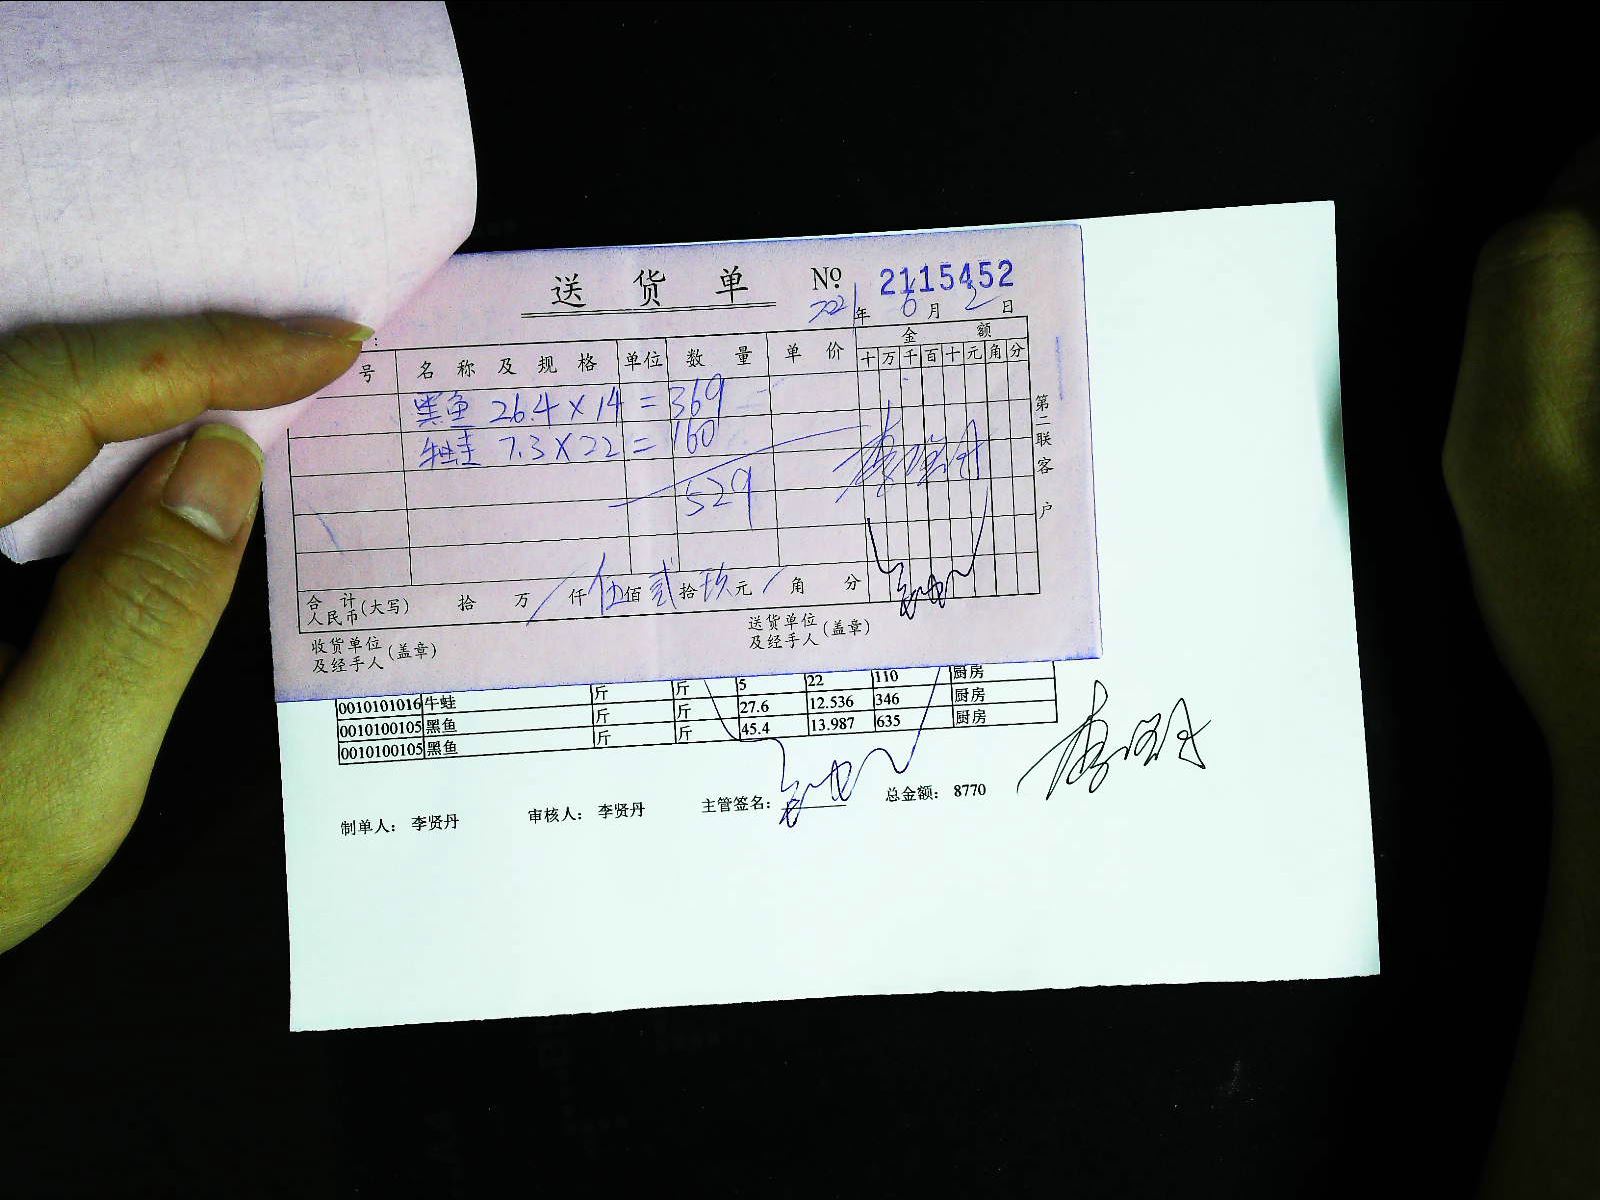 送货单 № 2115452
2021年6月2日
号 名称及规格 单位 数量 单价 金额
十万千百十元角分
黑鱼 26.4×14=369
牛蛙 7.3×22=160
529
李贤丹
合计人民币(大写) 拾 万 仟伍佰贰拾玖元 角 分
收货单位及经手人(盖章) 送货单位及经手人(盖章)
第二联 客户
0010101016 牛蛙 斤 斤 5 22 110 厨房
0010100105 黑鱼 斤 斤 27.6 12.536 346 厨房
0010100105 黑鱼 斤 斤 45.4 13.987 635 厨房
制单人： 李贤丹 审核人： 李贤丹 主管签名： 总金额： 8770
李贤丹